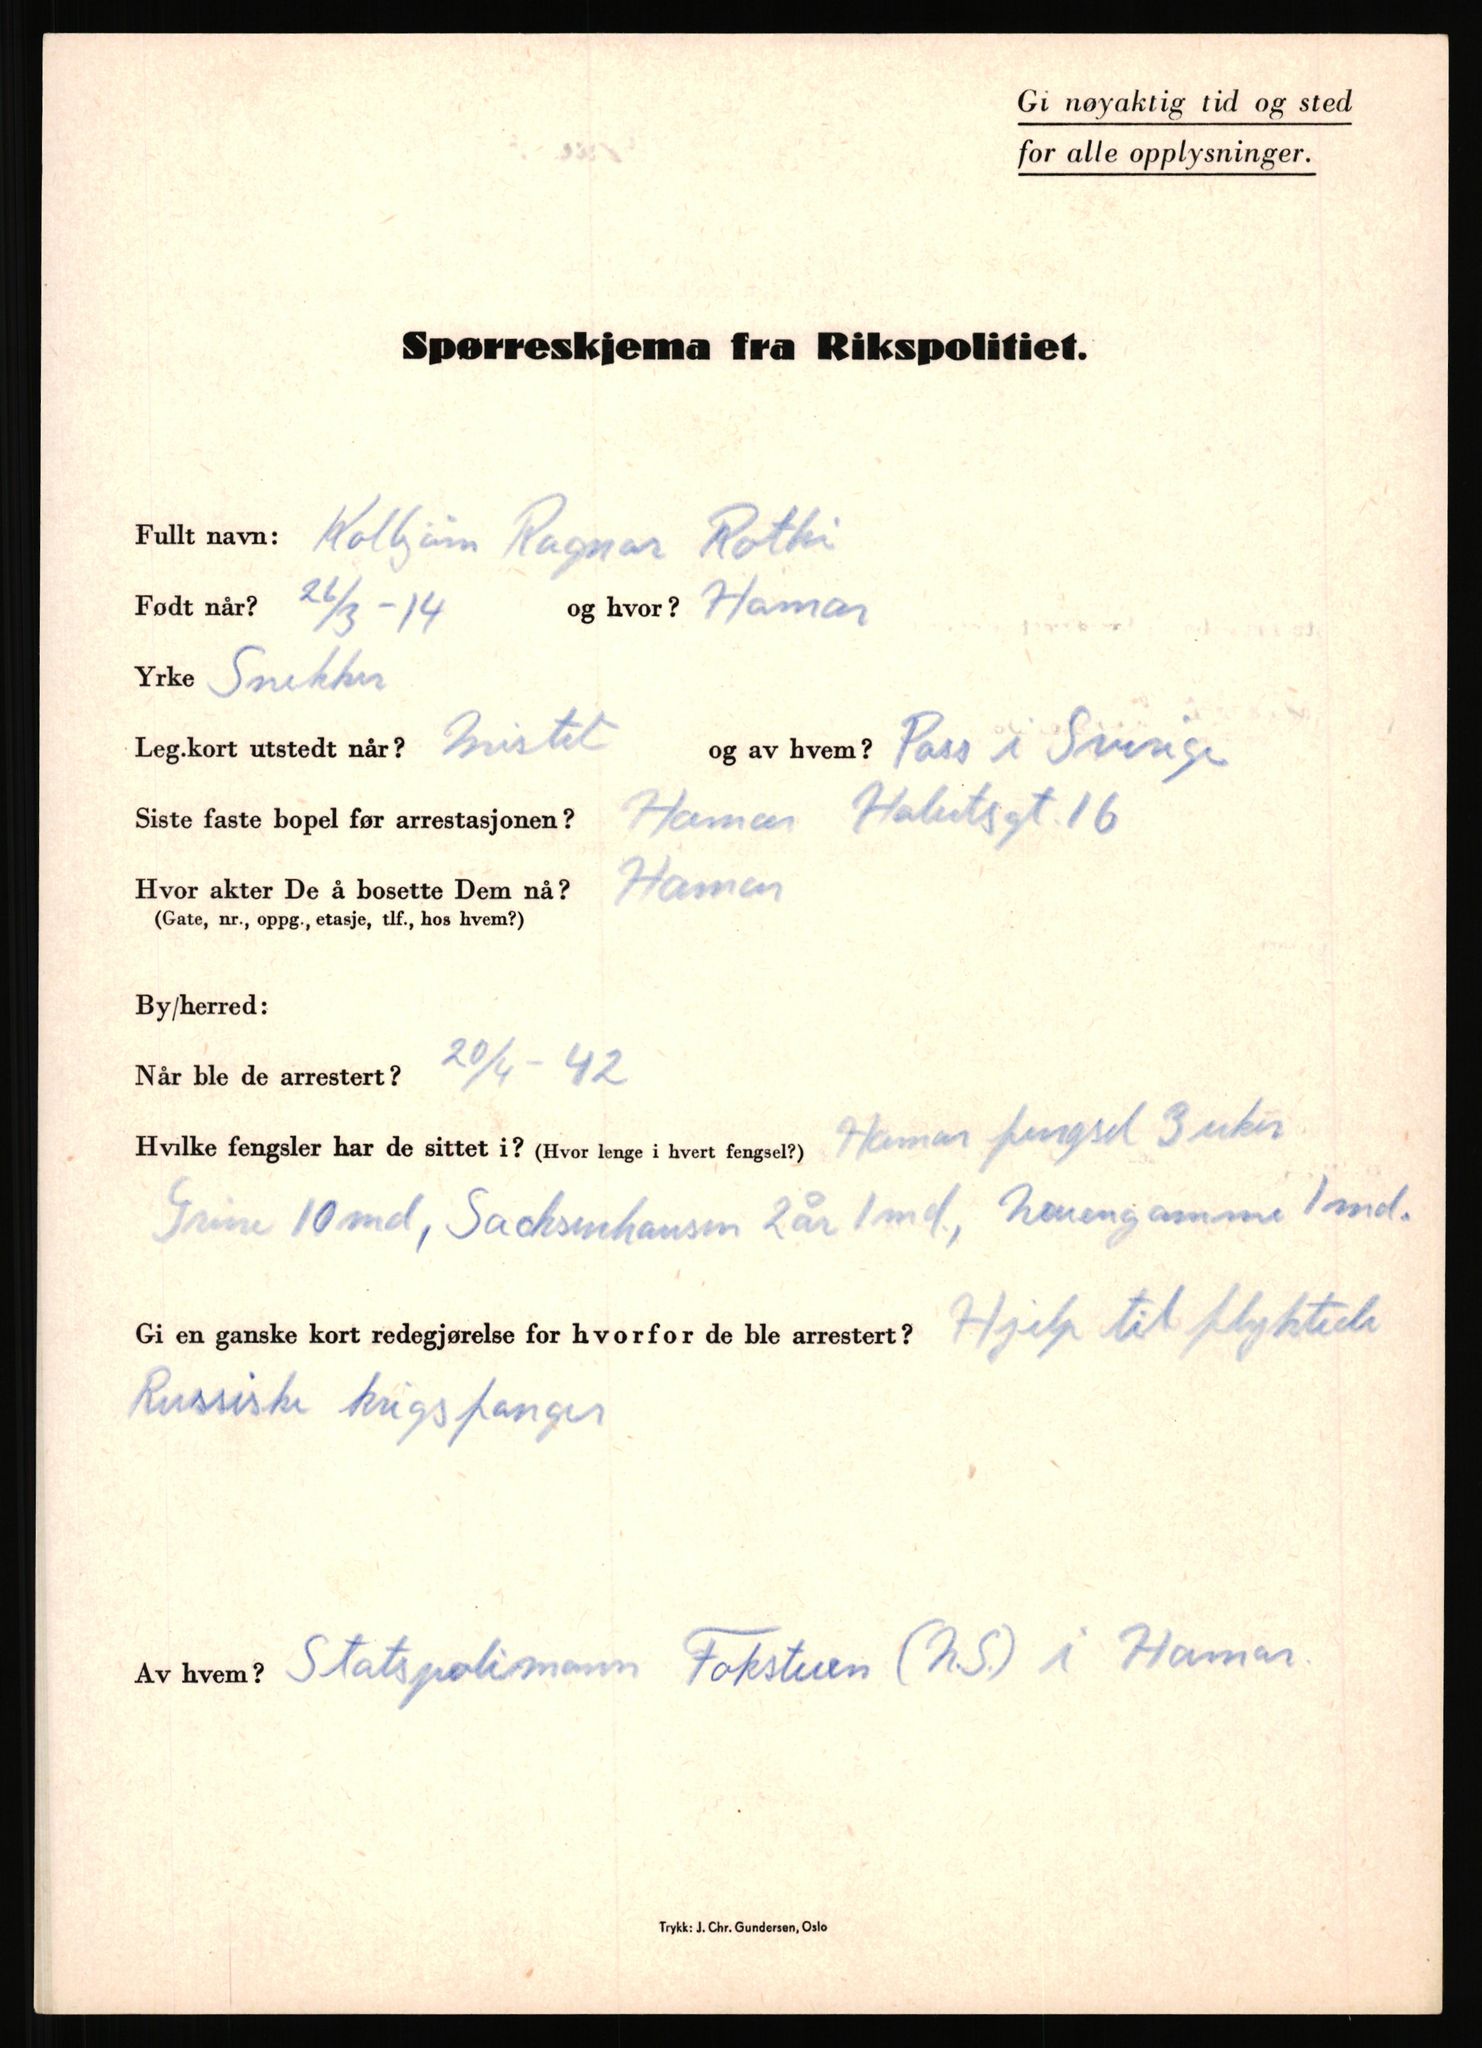 Gi nøyaktig tid og sted
for alle opplysninger.
Spørreskjema fra Rikspolitiet.
Fullt navn: Kolbjørn Ragnar
Født når? 26/3 - 14 og hvor? Hamar
Yrke Snekker
Leg.kort utstedt når? Mistet og av hvem? Pass i Sverige
Siste faste bopel før arrestasjonen? Hamar 16
Hvor akter De å bosette Dem nå? Hamar
(Gate, nr., oppg., etasje, tlf., hos hvem?)
By/herred:
Når ble de arrestert? 20/4 - 42
Hvilke fengsler har de sittet i? (Hvor lenge i hvert fengsel?) Hamar fengsel 3 uker
Grine 10 md, Sachsenhausen 2 år 1 md., Neuengamme 1 md.
Gi en ganske kort redegjørelse for hvorfor de ble arrestert? Hjelp til flyktede
Russiske krigsfanger
Av hvem? Statspolimann Fokstuen (N.S.) i Hamar.
Trykk: J. Chr. Gundersen, Oslo